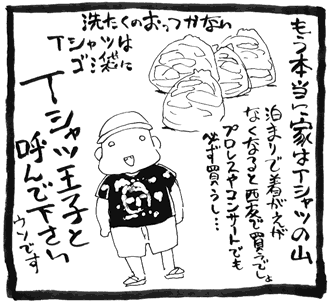 もう本当に家はTシャツの山
泊まりで着がえが
なくなると西友で買うでしょ
プロレスやコンサートでも
必ず買うし…
洗たくのおっつかない
Tシャツは
ゴミ袋に
Tシャツ王子と
呼んで下さい
ウソです